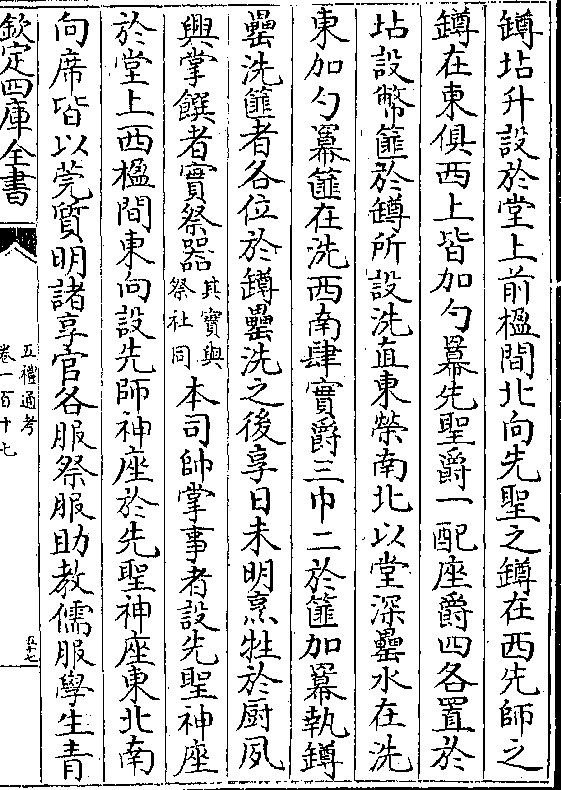 罇坫升設於堂上前楹間北向先聖之罇在西先師之
罇在東俱西上皆加勺羃先聖爵一配座爵四各置於
坫設幣篚於罇所設洗直東榮南北以堂深罍水在洗
東加勺羃篚在洗西南肆實爵三巾二於篚加羃執罇
罍洗篚者各位於罇罍洗之後享日未明烹牲於厨夙
興掌饌者實祭器其實與祭社同本司帥掌事者設先聖神座
於堂上西楹間東向設先師神座於先聖神座東北南
向席皆以莞質明諸享官各服祭服助教儒服學生青
欽定四庫全書
五禮通考
卷一百十七
五十七